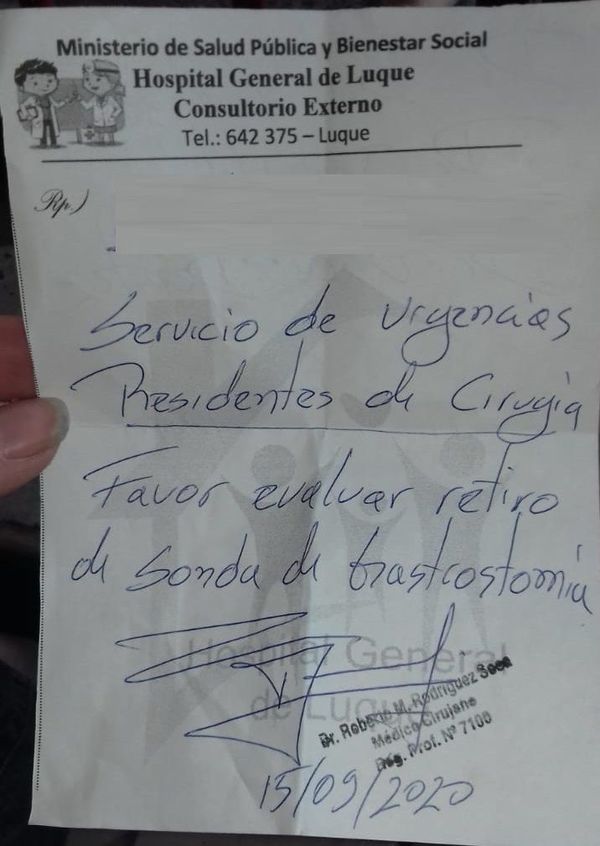 Ministerio de Salud Pública y Bienestar Social
Hospital General de Luque
Consultorio Externo
Tel.: 642 375 – Luque
Rp.)
Servicio de Urgencias
Residentes de Cirugía
Favor evaluar retiro
de Sonda de Gastrostomia
Hospital General
de Luque
Dr. Roberto M. Rodriguez Sosa
Médico Cirujano
Reg. Prof. Nº 7100
15/09/2020